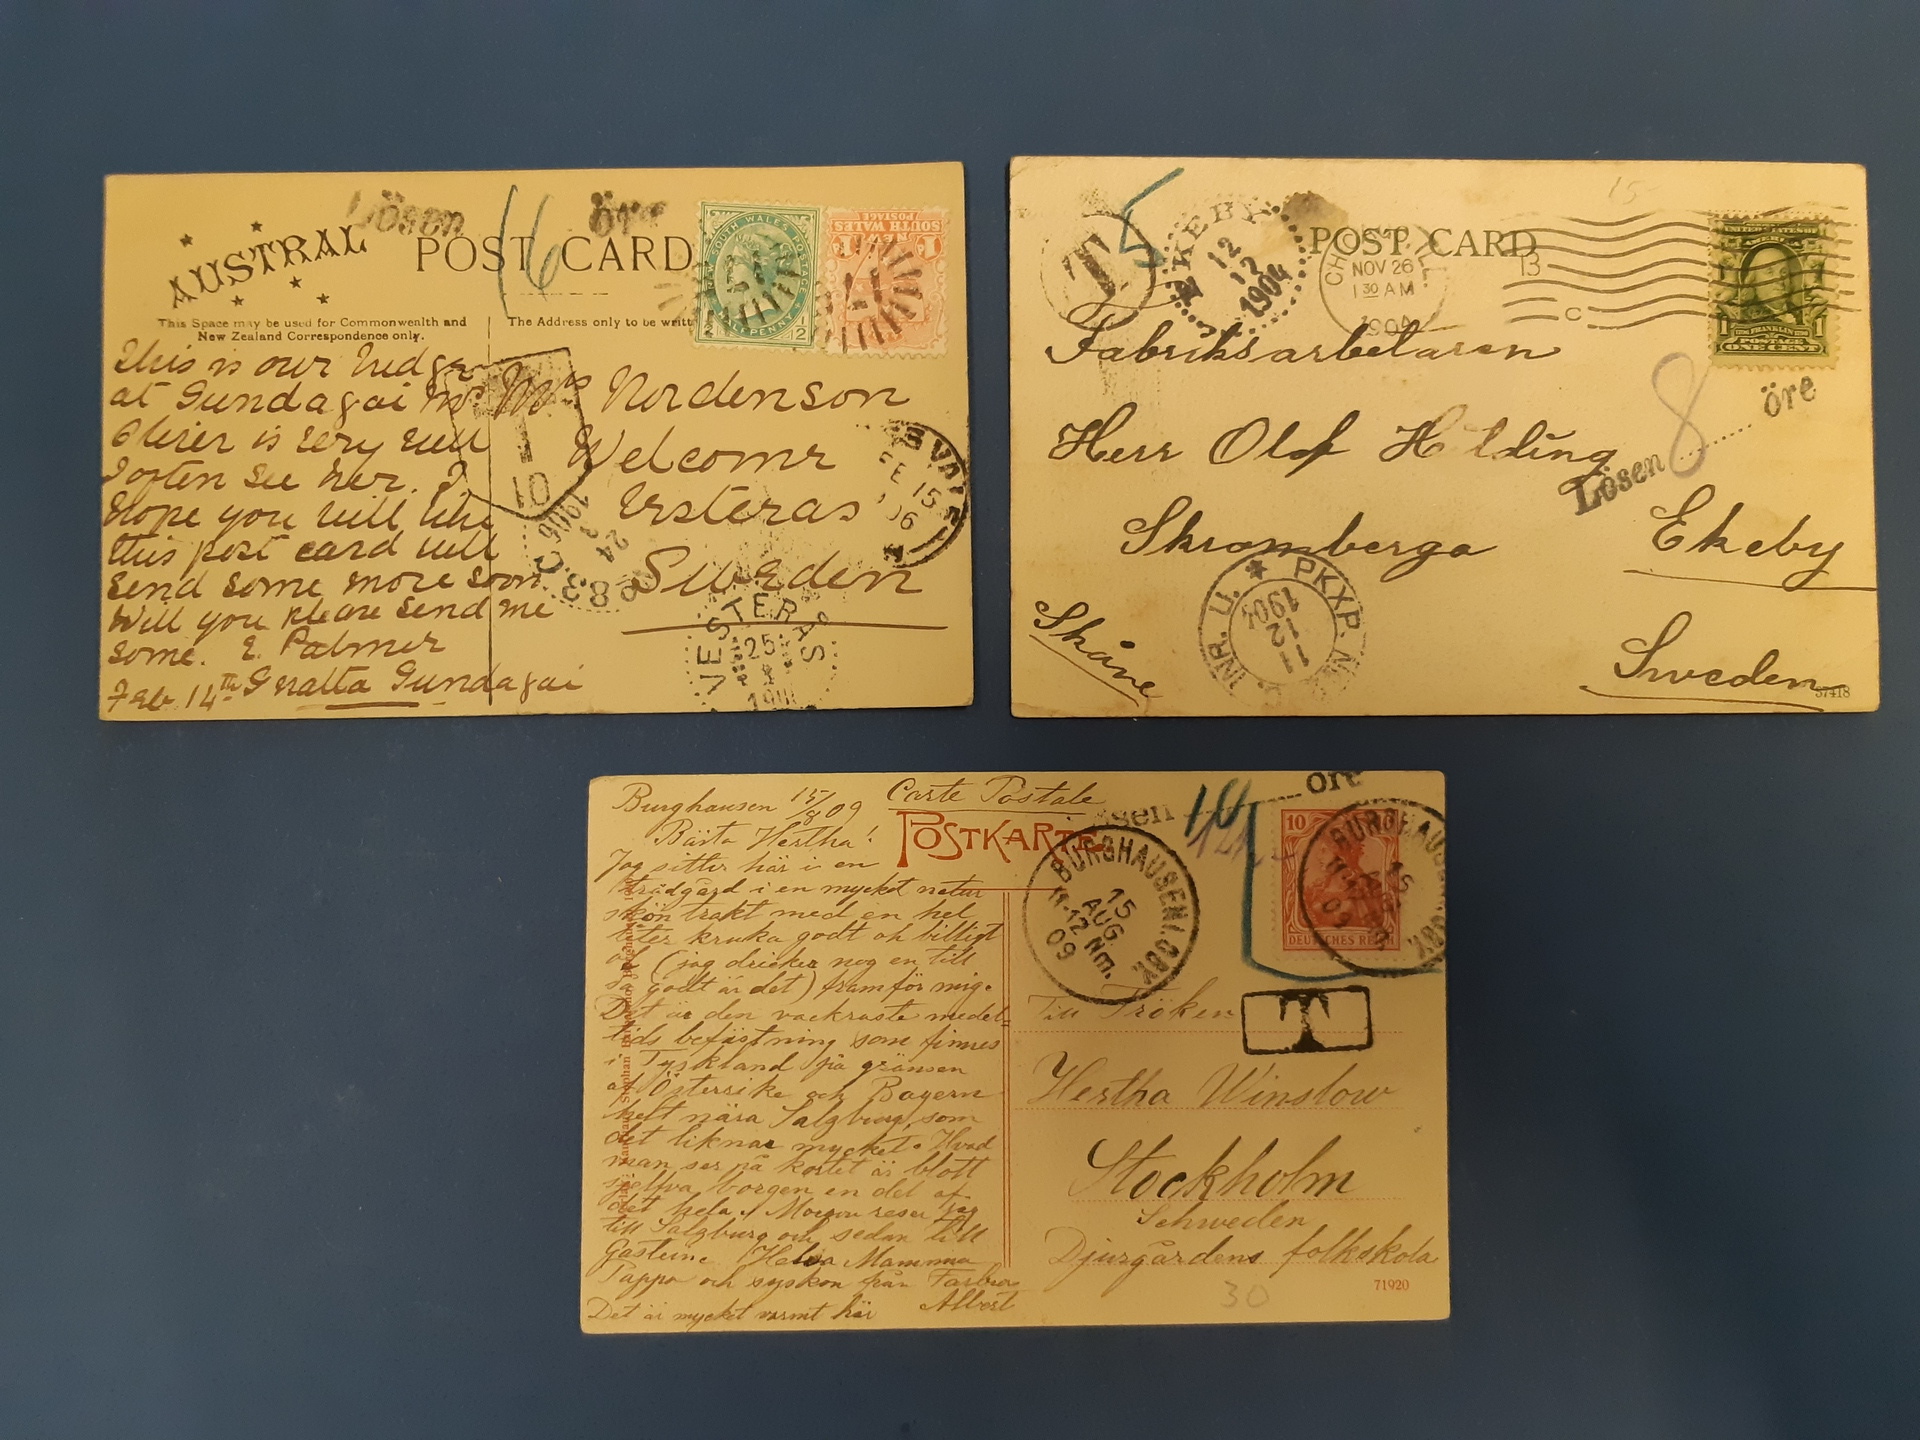 Lösen 16 öre
AUSTRAL
POST CARD
This Space may be used for Commonwealth and
New Zealand Correspondence only.
The Address only to be writt
NEW SOUTH WALES POSTAGE
HALFPENNY
½ ½
NEW
SOUTH WALES
POSTAGE
1d 1d
This is our Lodge
at Gundagai Mrs
is very well
I often see her. I
Hope you will like
this post card will
send some more soon
Will you please send me
some. E. Palmer
Feb. 14th Gundagai
T
10
Mrs Nordenson
Welcome
Sweden
FE 15
06
24
1906
83
VESTERÅS
25
T 5
EKEBY
12
12
1904
POST CARD
NOV 26
1 30 AM
1904
13
C
15
UNITED STATES OF
AMERICA
1 FRANKLIN 1
POSTAGE
ONE CENT
Fabriksarbetaren
Herr Olof Hilding
Lösen 8 öre
Skromberga
Ekeby
Skåne
Sweden
PKXP. INR. U.
11
12
1904
37418
Burghausen 15/8 09
Carte Postale
POSTKARTE
Lösen 10 öre
Bästa Hertha!
Jag sitter här i en
trädgård i en mycket natur
skön trakt med en hel
liter kruka godt och billigt
öl (jag dricker nog en till
så godt är det) framför mig.
Det är den vackraste medel=
tids befästning som finnes
i Tyskland på gränsen
af Österrike och Bayern
helt nära Salzburg, som
det liknar mycket. Hvad
man ser på kortet är blott
sjelfva borgen en del af
det hela. I Morgon reser jag
till Salzburg och sedan till
Gastein. Helsa Mamma
Pappa och syskon från Farbror
Albert
Det är mycket varmt här
BURGHAUSEN I. OBY.
15
AUG.
11-12 Nm.
09
10 10
DEUTSCHES REICH
BURGHAUSEN I. OBY.
15
AUG.
11-12 Nm.
09
T
Till Fröken
Hertha Winslow
Stockholm
Schweden
Djurgårdens folkskola
30
71920